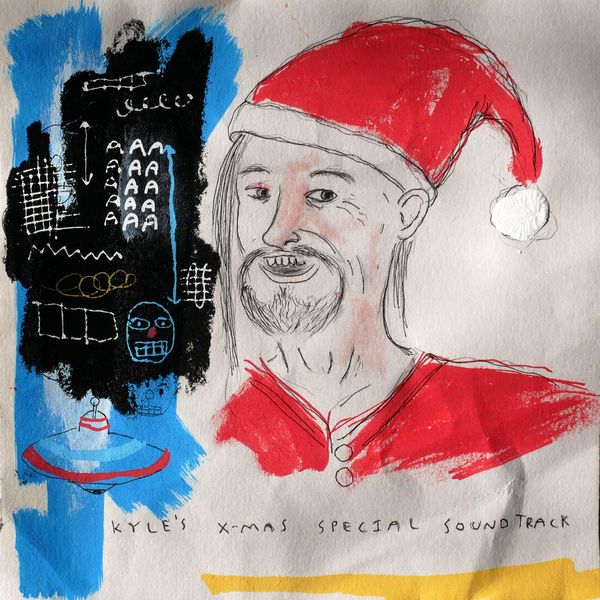 A A
A A A
A A A
A A A
A A A
KYLE'S X-MAS SPECIAL SOUNDTRACK